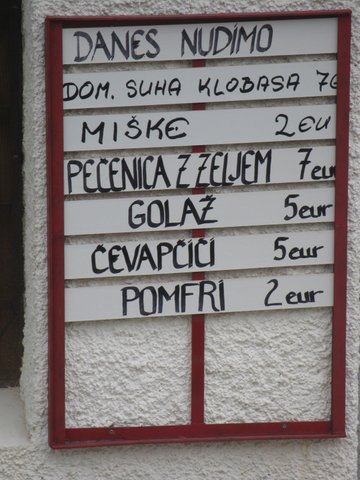 DANES NUDIMO
DOM. SUHA KLOBASA 7€
MIŠKE 2 EU
PEČENICA Z ZELJEM 7eur
GOLAŽ 5eur
ČEVAPČIČI 5eur
POMFRI 2eur